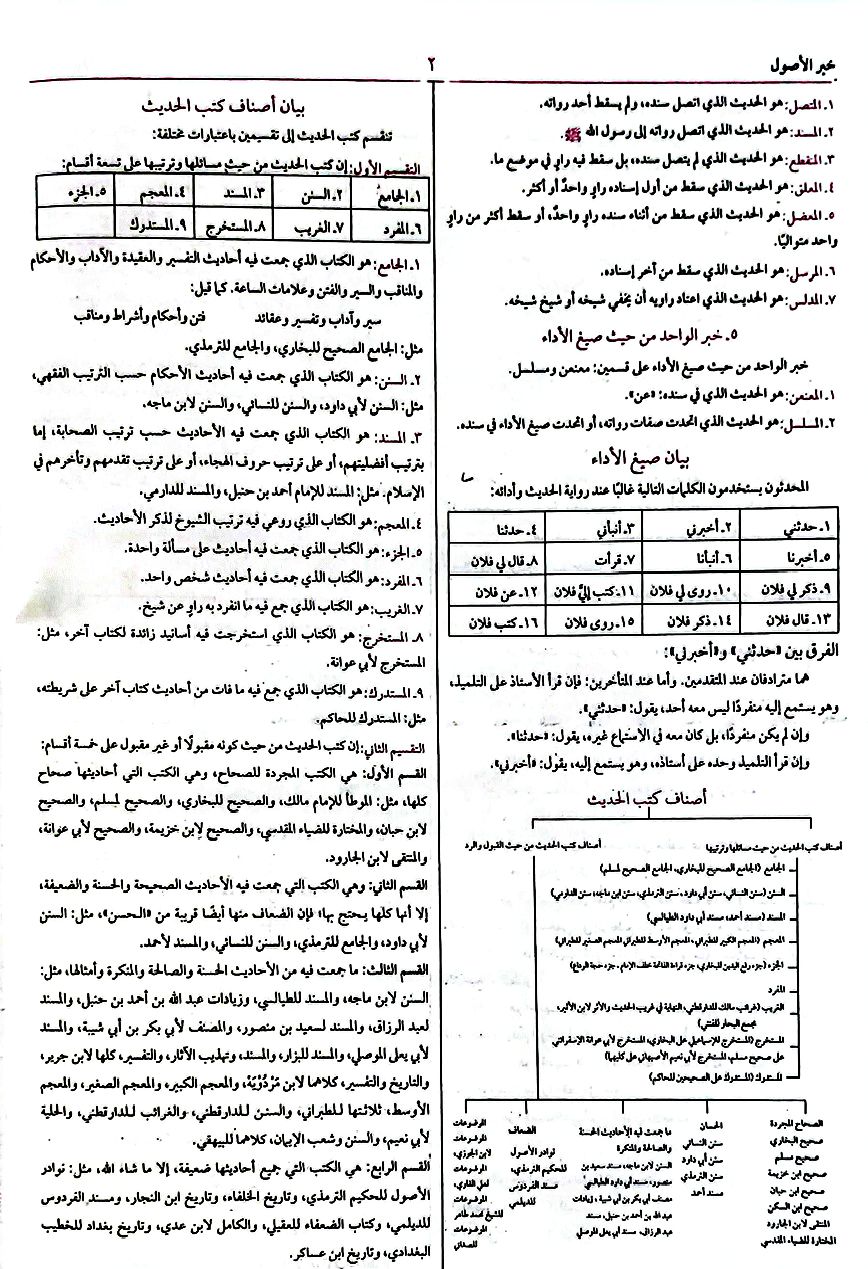 خبر الأصول
٢
١. المتصل: هو الحديث الذي اتصل سنده، ولم يسقط أحد رواته.
٢. المسند: هو الحديث الذي اتصل رواته إلى رسول الله ﷺ.
٣. المنقطع: هو الحديث الذي لم يتصل سنده، بل سقط فيه راوٍ في موضع ما.
٤. المعلق: هو الحديث الذي سقط من أول إسناده راوٍ واحدٌ أو أكثر.
٥. المعضل: هو الحديث الذي سقط من أثناء سنده راوٍ واحدٌ، أو سقط أكثر من راوٍ
واحد متواليًا.
٦. المرسل: هو الحديث الذي سقط من آخر إسناده.
٧. المدلس: هو الحديث الذي اعتاد راويه أن يخفي شيخه أو شيخ شيخه.
٥. خبر الواحد من حيث صيغ الأداء
خبر الواحد من حيث صيغ الأداء على قسمين: معنعن ومسلسل.
١. المعنعن: هو الحديث الذي في سنده: «عن».
٢. المسلسل: هو الحديث الذي اتحدت صفات رواته، أو اتحدت صيغ الأداء في سنده.
بيان صيغ الأداء
المحدثون يستخدمون الكلمات التالية غالبًا عند رواية الحديث وأدائه:
١. حدثني ٢. أخبرني ٣. أنبأني ٤. حدثنا
٥. أخبرنا ٦. أنبأنا ٧. قرأت ٨. قال لي فلان
٩. ذكر لي فلان ١٠. روى لي فلان ١١. كتب إليَّ فلان ١٢. عن فلان
١٣. قال فلان ١٤. ذكر فلان ١٥. روى فلان ١٦. كتب فلان
الفرق بين «حدثني» و«أخبرني»:
هما مترادفان عند المتقدمين. وأما عند المتأخرين: فإن قرأ الأستاذ على التلميذ،
وهو يستمع إليه منفردًا ليس معه أحد، يقول: «حدثني».
وإن لم يكن منفردًا، بل كان معه في الاستماع غيره، يقول: «حدثنا».
وإن قرأ التلميذ وحده على أستاذه، وهو يستمع إليه، يقول: «أخبرني».
أصناف كتب الحديث
أصناف كتب الحديث من حيث مسائلها وترتيبها
أصناف كتب الحديث من حيث القبول والرد
الجامع (الجامع الصحيح للبخاري، الجامع الصحيح لمسلم)
السنن (سنن النسائي، سنن أبي داود، سنن الترمذي، سنن ابن ماجه، سنن الدارمي)
المسند (مسند أحمد، مسند أبي داود الطيالسي)
المعجم (المعجم الكبير للطبراني، المعجم الأوسط للطبراني، المعجم الصغير للطبراني)
الجزء (جزء رفع اليدين للبخاري، جزء قراءة الفاتحة خلف الإمام، جزء حجة الوداع)
المفرد
الغريب (غرائب مالك للدارقطني، النهاية في غريب الحديث والأثر لابن الأثير،
مجمع البحار للفتني)
المستخرج (المستخرج للإسماعيلي على البخاري، المستخرج لأبي عوانة الإسفرائني
على صحيح مسلم، المستخرج لأبي نعيم الأصبهاني على كليهما)
المستدرك (المستدرك على الصحيحين للحاكم)
الصحاح المجردة
صحيح البخاري
صحيح مسلم
صحيح ابن خزيمة
صحيح ابن حبان
صحيح ابن السكن
المنتقى لابن الجارود
المختارة للضياء المقدسي
الحسان
سنن النسائي
سنن أبي داود
سنن الترمذي
مسند أحمد
ما جمعت فيه الأحاديث الحسنة
والصالحة والمنكرة
السنن لابن ماجه، مسند سعيد بن
منصور، مسند أبي داود الطيالسي
مصنف أبي بكر بن أبي شيبة، زيادات
عبد الله بن أحمد بن حنبل، مسند
عبد الرزاق، مسند أبي يعلى الموصلي
الضعاف
نوادر الأصول
للحكيم الترمذي،
مسند الفردوس
للديلمي
الموضوعات
الموضوعات
لابن الجوزي،
الموضوعات
لعلي القاري،
الموضوعات
للشيخ محمد طاهر
الموضوعات
للصغاني
بيان أصناف كتب الحديث
تنقسم كتب الحديث إلى تقسيمين باعتبارات مختلفة:
التقسيم الأول: إن كتب الحديث من حيث مسائلها وترتيبها على تسعة أقسام:
١. الجامع ٢. السنن ٣. المسند ٤. المعجم ٥. الجزء
٦. المفرد ٧. الغريب ٨. المستخرج ٩. المستدرك
١. الجامع: هو الكتاب الذي جمعت فيه أحاديث التفسير والعقيدة والآداب والأحكام
والمناقب والسير والفتن وعلامات الساعة. كما قيل:
سير وآداب وتفسير وعقائد فتن وأحكام وأشراط ومناقب
مثل: الجامع الصحيح للبخاري، والجامع للترمذي.
٢. السنن: هو الكتاب الذي جمعت فيه أحاديث الأحكام حسب الترتيب الفقهي،
مثل: السنن لأبي داود، والسنن للنسائي، والسنن لابن ماجه.
٣. المسند: هو الكتاب الذي جمعت فيه الأحاديث حسب ترتيب الصحابة، إما
بترتيب أفضليتهم، أو على ترتيب حروف الهجاء، أو على ترتيب تقدمهم وتأخرهم في
الإسلام. مثل: المسند للإمام أحمد بن حنبل، والمسند للدارمي.
٤. المعجم: هو الكتاب الذي روعي فيه ترتيب الشيوخ لذكر الأحاديث.
٥. الجزء: هو الكتاب الذي جمعت فيه أحاديث على مسألة واحدة.
٦. المفرد: هو الكتاب الذي جمعت فيه أحاديث شخص واحد.
٧. الغريب: هو الكتاب الذي جمع فيه ما انفرد به راوٍ عن شيخ.
٨. المستخرج: هو الكتاب الذي استخرجت فيه أسانيد زائدة لكتاب آخر، مثل:
المستخرج لأبي عوانة.
٩. المستدرك: هو الكتاب الذي جمع فيه ما فات من أحاديث كتاب آخر على شريطته،
مثل: المستدرك للحاكم.
التقسيم الثاني: إن كتب الحديث من حيث كونه مقبولًا أو غير مقبول على خمسة أقسام:
القسم الأول: هي الكتب المجردة للصحاح، وهي الكتب التي أحاديثها صحاح
كلها، مثل: الموطأ للإمام مالك، والصحيح للبخاري، والصحيح لمسلم، والصحيح
لابن حبان، والمختارة للضياء المقدسي، والصحيح لابن خزيمة، والصحيح لأبي عوانة،
والمنتقى لابن الجارود.
القسم الثاني: وهي الكتب التي جمعت فيه الأحاديث الصحيحة والحسنة والضعيفة،
إلا أنها كلها يحتج بها؛ فإن الضعاف منها أيضًا قريبة من «الحسن»، مثل: السنن
لأبي داود، والجامع للترمذي، والسنن للنسائي، والمسند لأحمد.
القسم الثالث: ما جمعت فيه من الأحاديث الحسنة والصالحة والمنكرة وأمثالها، مثل:
السنن لابن ماجه، والمسند للطيالسي، وزيادات عبد الله بن أحمد بن حنبل، والمسند
لعبد الرزاق، والمسند لسعيد بن منصور، والمصنف لأبي بكر بن أبي شيبة، والمسند
لأبي يعلى الموصلي، والمسند للبزار، والمسند، وتهذيب الآثار، والتفسير، كلها لابن جرير،
والتاريخ والتفسير، كلاهما لابن مَرْدُوْيَهْ، والمعجم الكبير، والمعجم الصغير، والمعجم
الأوسط، ثلاثتها للطبراني، والسنن للدارقطني، والغرائب للدارقطني، والحلية
لأبي نعيم، والسنن وشعب الإيمان، كلاهما للبيهقي.
القسم الرابع: هي الكتب التي جميع أحاديثها ضعيفة، إلا ما شاء الله، مثل: نوادر
الأصول للحكيم الترمذي، وتاريخ الخلفاء، وتاريخ ابن النجار، ومسند الفردوس
للديلمي، وكتاب الضعفاء للعقيلي، والكامل لابن عدي، وتاريخ بغداد للخطيب
البغدادي، وتاريخ ابن عساكر.